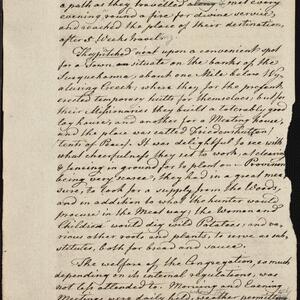 a path as they travelled along, met every
evening round a fire, for divine service,
and reached the place of their destination,
after 5 Weeks travel.
They pitched next upon a convenient spot
for a Town situate on the banks of the
Susquehanna, about one Mile below Wy-
alusing Creek, where, for the present, they
erected temporary huts for themselves, but
their Missionaries they built a tolerably good
log house, and another for a Meeting House,
and the place was called Friedenshutten
(Tents of Peace). It was delightful to see with
what cheerfulness they set to work a clearing
& fencing in ground for to plant on. Provisions
being very scarce, they had in a great mea-
sure, to look for a supply from the Woods,
and in addition to what the hunter would
procure in the Meat way; the Women and
Children would dig wild Potatoes, and va-
rious other roots and plants, to serve as sub-
stitutes, both for bread and sauce.
The welfare of the Congregation, so much
depending on its internal regulations, was
not less attended to. Morning and Evening
Meetings were daily held, weather permitting